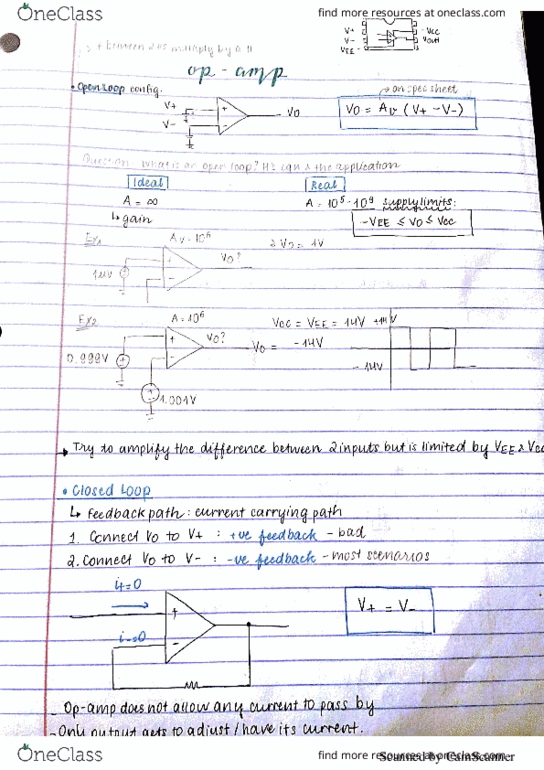 OneClass
find more resources at oneclass.com
V+
V-
VEE -
- VCC
Vout
op - amp
• Open Loop config.
→ on spec sheet
V+
V-
+
-
VO
VO = Av (V+ - V-)
Question: what is an open loop?
& the application
Ideal
Real
A = ∞
↳ gain
A = 10⁵ - 10⁹ supply limits:
-VEE ≤ VO ≤ VCC
Ex1
Av = 10⁶
VO?
VO = 1V
1uV
+
-
Ex2
A = 10⁶
VO?
VCC = VEE = 14V
+14V
VO = -14V
-14V
0.999V
+
-
1.001V
→ Try to amplify the difference between 2 inputs but is limited by VEE & VCC
• Closed Loop
↳ feedback path : current carrying path
1. Connect VO to V+ : +ve feedback - bad
2. Connect VO to V- : -ve feedback - most scenarios
i+=0
i-=0
+
-
V+ = V-
- Op-amp does not allow any current to pass by
- Only output gets to adjust / have its current.
OneClass
find more resources at oneclass.com
Scanned by CamScanner